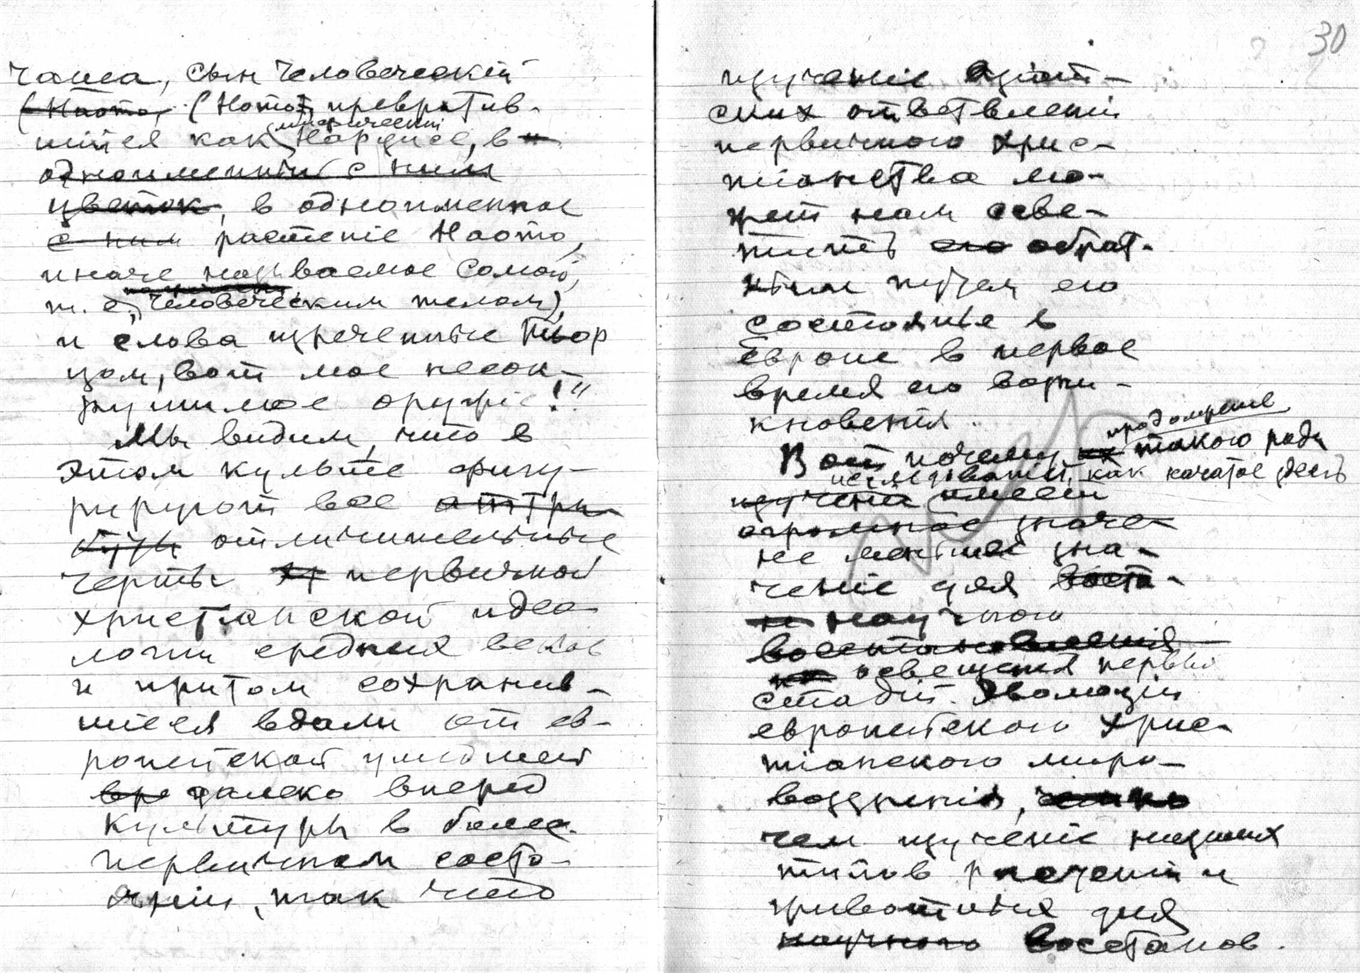 чаша, сын Человеческій
(Наото, (Наото превратив-
шійся как мифическій Нарцисс, в
одноименный с ним
цветок, в одноименное
с ним растеніе Наото,
иначе называемое Сомой,
т. е. Человеческим телом),
и слова изреченные Твор
цом, вот мое несок-
рушимое оружіе!"
Мы видим, что в
этом культе фигу-
рируют все аттри-
буты отличительные
черты первичной
христіанской идео
логіи средних веков
и притом сохранив-
шіеся вдали от ев-
ропейской ушедшей
далеко вперед
культуры в более
первичном состо-
яніи, так что
30
изученіе азіат-
ских ответвленій
первичного хрис-
тіанства мо-
жет нам осве-
тить его обрат-
ным путем его
состоянье в
Европе в первое
время его возни-
кновенія.
продолженіе
Вот почему такого рода
изследованій, как начатое здесь
изученія имеет
огромное значе-
не меньшее зна-
ченіе для
научного
восстановленія
освещенія первых
стадій эволюціи
европейского Хрис-
тіанского міро-
воззренія,
чем изученіе низших
типов растеній и
животных для
научного восстанов-